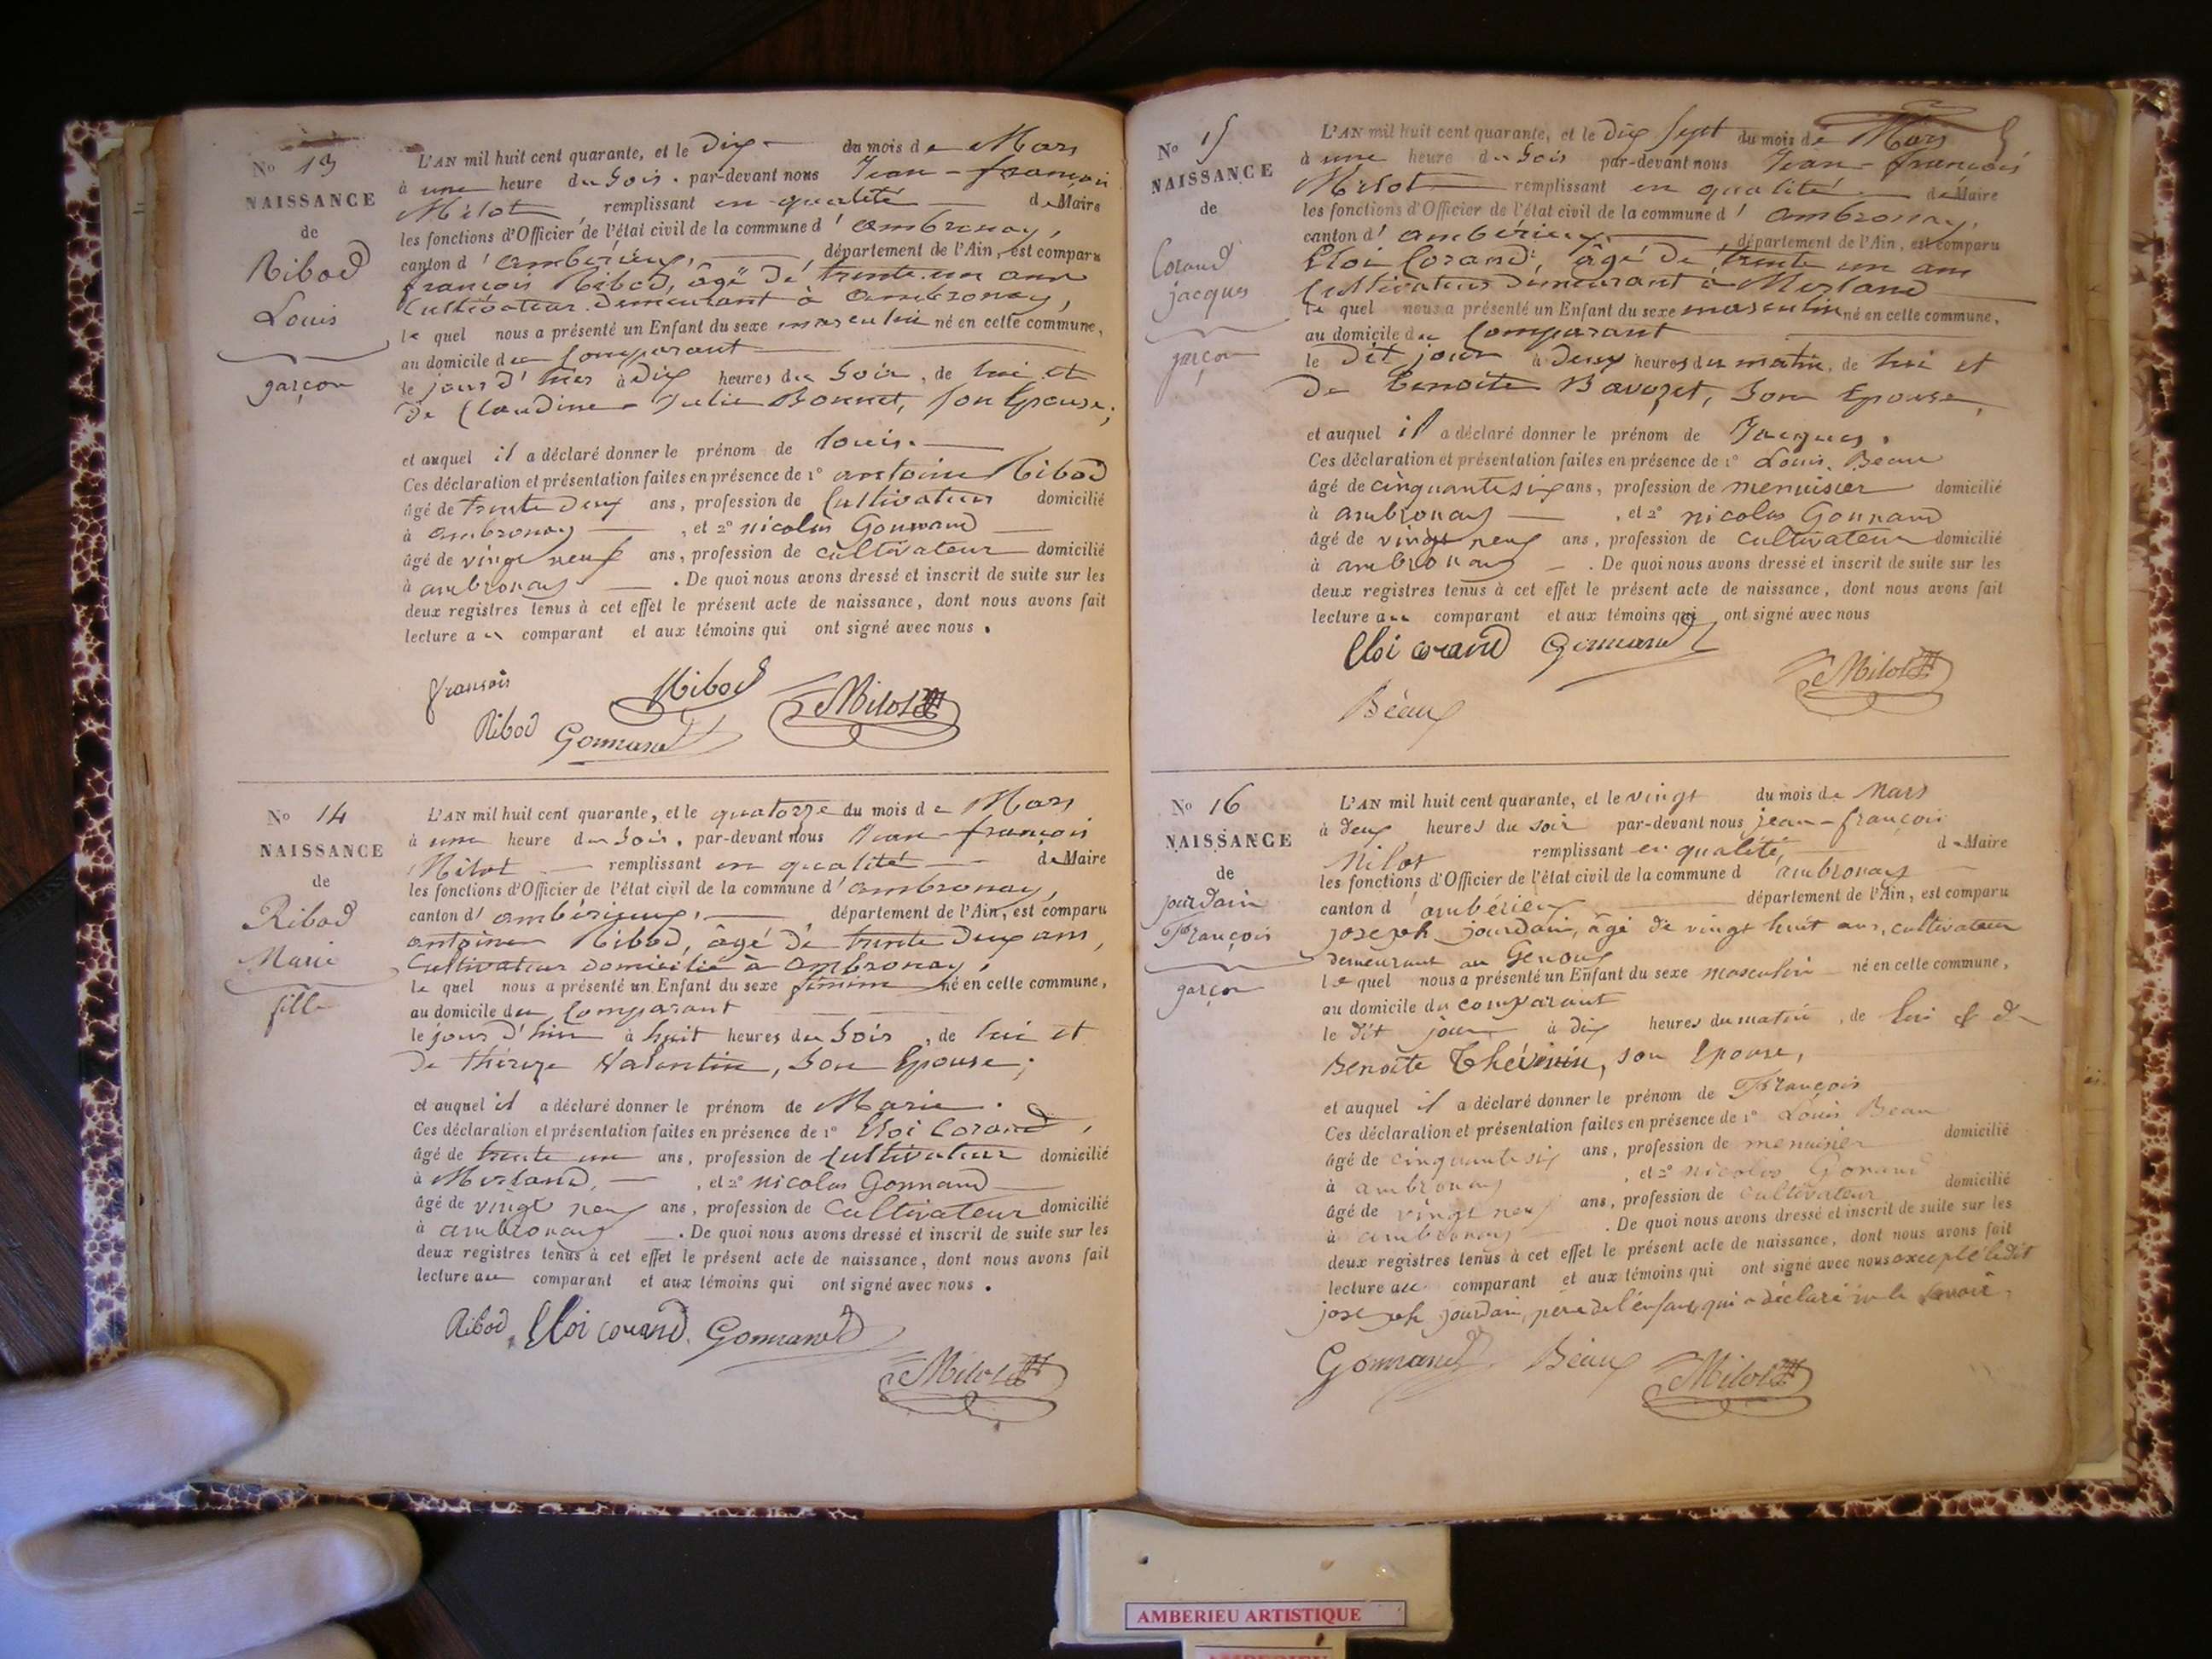 No 13
NAISSANCE
de
Ribod
Louis
garçon
L'AN mil huit cent quarante, et le Dix du mois de Mars
à une heure du Soir. par-devant nous Jean-françois
Milot remplissant en qualité de Maire
les fonctions d'Officier de l'état civil de la commune d'ambronay,
canton d'ambérieux, département de l'Ain, est comparu
françois Ribod, âgé de trente un ans
Cultivateur Demeurant à ambronay,
le quel nous a présenté un Enfant du sexe masculin né en cette commune,
au domicile du Comparant
le jour d'hier à Dix heures du Soir, de lui et
De Claudine-Julie Bonnet, son Epouse;
et auquel il a déclaré donner le prénom de Louis.
Ces déclaration et présentation faites en présence de 1° antoine Ribod
âgé de trente Deux ans, profession de Cultivateur domicilié
à ambronay, et 2° nicolas Gonnand
âgé de vingt neuf ans, profession de cultivateur domicilié
à ambronay. De quoi nous avons dressé et inscrit de suite sur les
deux registres tenus à cet effet le présent acte de naissance, dont nous avons fait
lecture au comparant et aux témoins qui ont signé avec nous.
françois Ribod Milot
Ribod Gonnand
No 14
NAISSANCE
de
Ribod
Marie
fille
L'AN mil huit cent quarante, et le quatorze du mois de Mars
à une heure du Soir, par-devant nous Jean-françois
Milot remplissant en qualité de Maire
les fonctions d'Officier de l'état civil de la commune d'ambronay,
canton d'ambérieux, département de l'Ain, est comparu
antoine Ribod, âgé de trente Deux ans,
Cultivateur domicilié à ambronay,
le quel nous a présenté un Enfant du sexe féminin né en cette commune,
au domicile du Comparant
le jour d'hier à huit heures du Soir, de lui et
De thérèze Valentin, Son Epouse;
et auquel il a déclaré donner le prénom de Marie.
Ces déclaration et présentation faites en présence de 1° Eloi Corand,
âgé de trente un ans, profession de Cultivateur domicilié
à Merland, et 2° nicolas Gonnand
âgé de vingt neuf ans, profession de Cultivateur domicilié
à ambronay. De quoi nous avons dressé et inscrit de suite sur les
deux registres tenus à cet effet le présent acte de naissance, dont nous avons fait
lecture au comparant et aux témoins qui ont signé avec nous.
Ribod Eloi corand Gonnand
Milot
No 15
NAISSANCE
de
Corand
jacques
garçon
L'AN mil huit cent quarante, et le Dix Sept du mois de Mars
à une heure du Soir par-devant nous Jean-françois
Milot remplissant en qualité de Maire
les fonctions d'Officier de l'état civil de la commune d'ambronay,
canton d'ambérieux, département de l'Ain, est comparu
Eloi Corand, âgé de trente un ans
Cultivateur Demeurant à Merland
le quel nous a présenté un Enfant du sexe masculin né en cette commune,
au domicile du Comparant
le Dit jour à Deux heures du matin, de lui et
De Benoîte Bavozet, Son Epouse,
et auquel il a déclaré donner le prénom de Jacques.
Ces déclaration et présentation faites en présence de 1° Louis Beau
âgé de cinquante six ans, profession de menuisier domicilié
à ambronay, et 2° nicolas Gonnand
âgé de vingt neuf ans, profession de cultivateur domicilié
à ambronay. De quoi nous avons dressé et inscrit de suite sur les
deux registres tenus à cet effet le présent acte de naissance, dont nous avons fait
lecture au comparant et aux témoins qui ont signé avec nous
Eloi corand Gonnand
Milot
Béaux
No 16
NAISSANCE
de
jourdain
François
garçon
L'AN mil huit cent quarante, et le vingt du mois de Mars
à deux heures du soir par-devant nous jean-françois
Milot remplissant en qualité, de Maire
les fonctions d'Officier de l'état civil de la commune d'ambronay
canton d'ambérieux département de l'Ain, est comparu
joseph jourdain, âgé de vingt huit ans, cultivateur
demeurant au Genoux
le quel nous a présenté un Enfant du sexe masculin né en cette commune,
au domicile du comparant
le dit jour à dix heures du matin, de lui & de
Benoîte Thévenin, son Epouse,
et auquel il a déclaré donner le prénom de François
Ces déclaration et présentation faites en présence de 1° Louis Beau
âgé de cinquante six ans, profession de menuisier domicilié
à ambronay, et 2° nicolas Gonand
âgé de vingt neuf ans, profession de cultivateur domicilié
à ambronay. De quoi nous avons dressé et inscrit de suite sur les
deux registres tenus à cet effet le présent acte de naissance, dont nous avons fait
lecture au comparant et aux témoins qui ont signé avec nous excepté ledit
joseph jourdain, père de l'enfant, qui a déclaré ne le savoir.
Gonnand Béaux Milot
AMBERIEU ARTISTIQUE
AMBERIEU